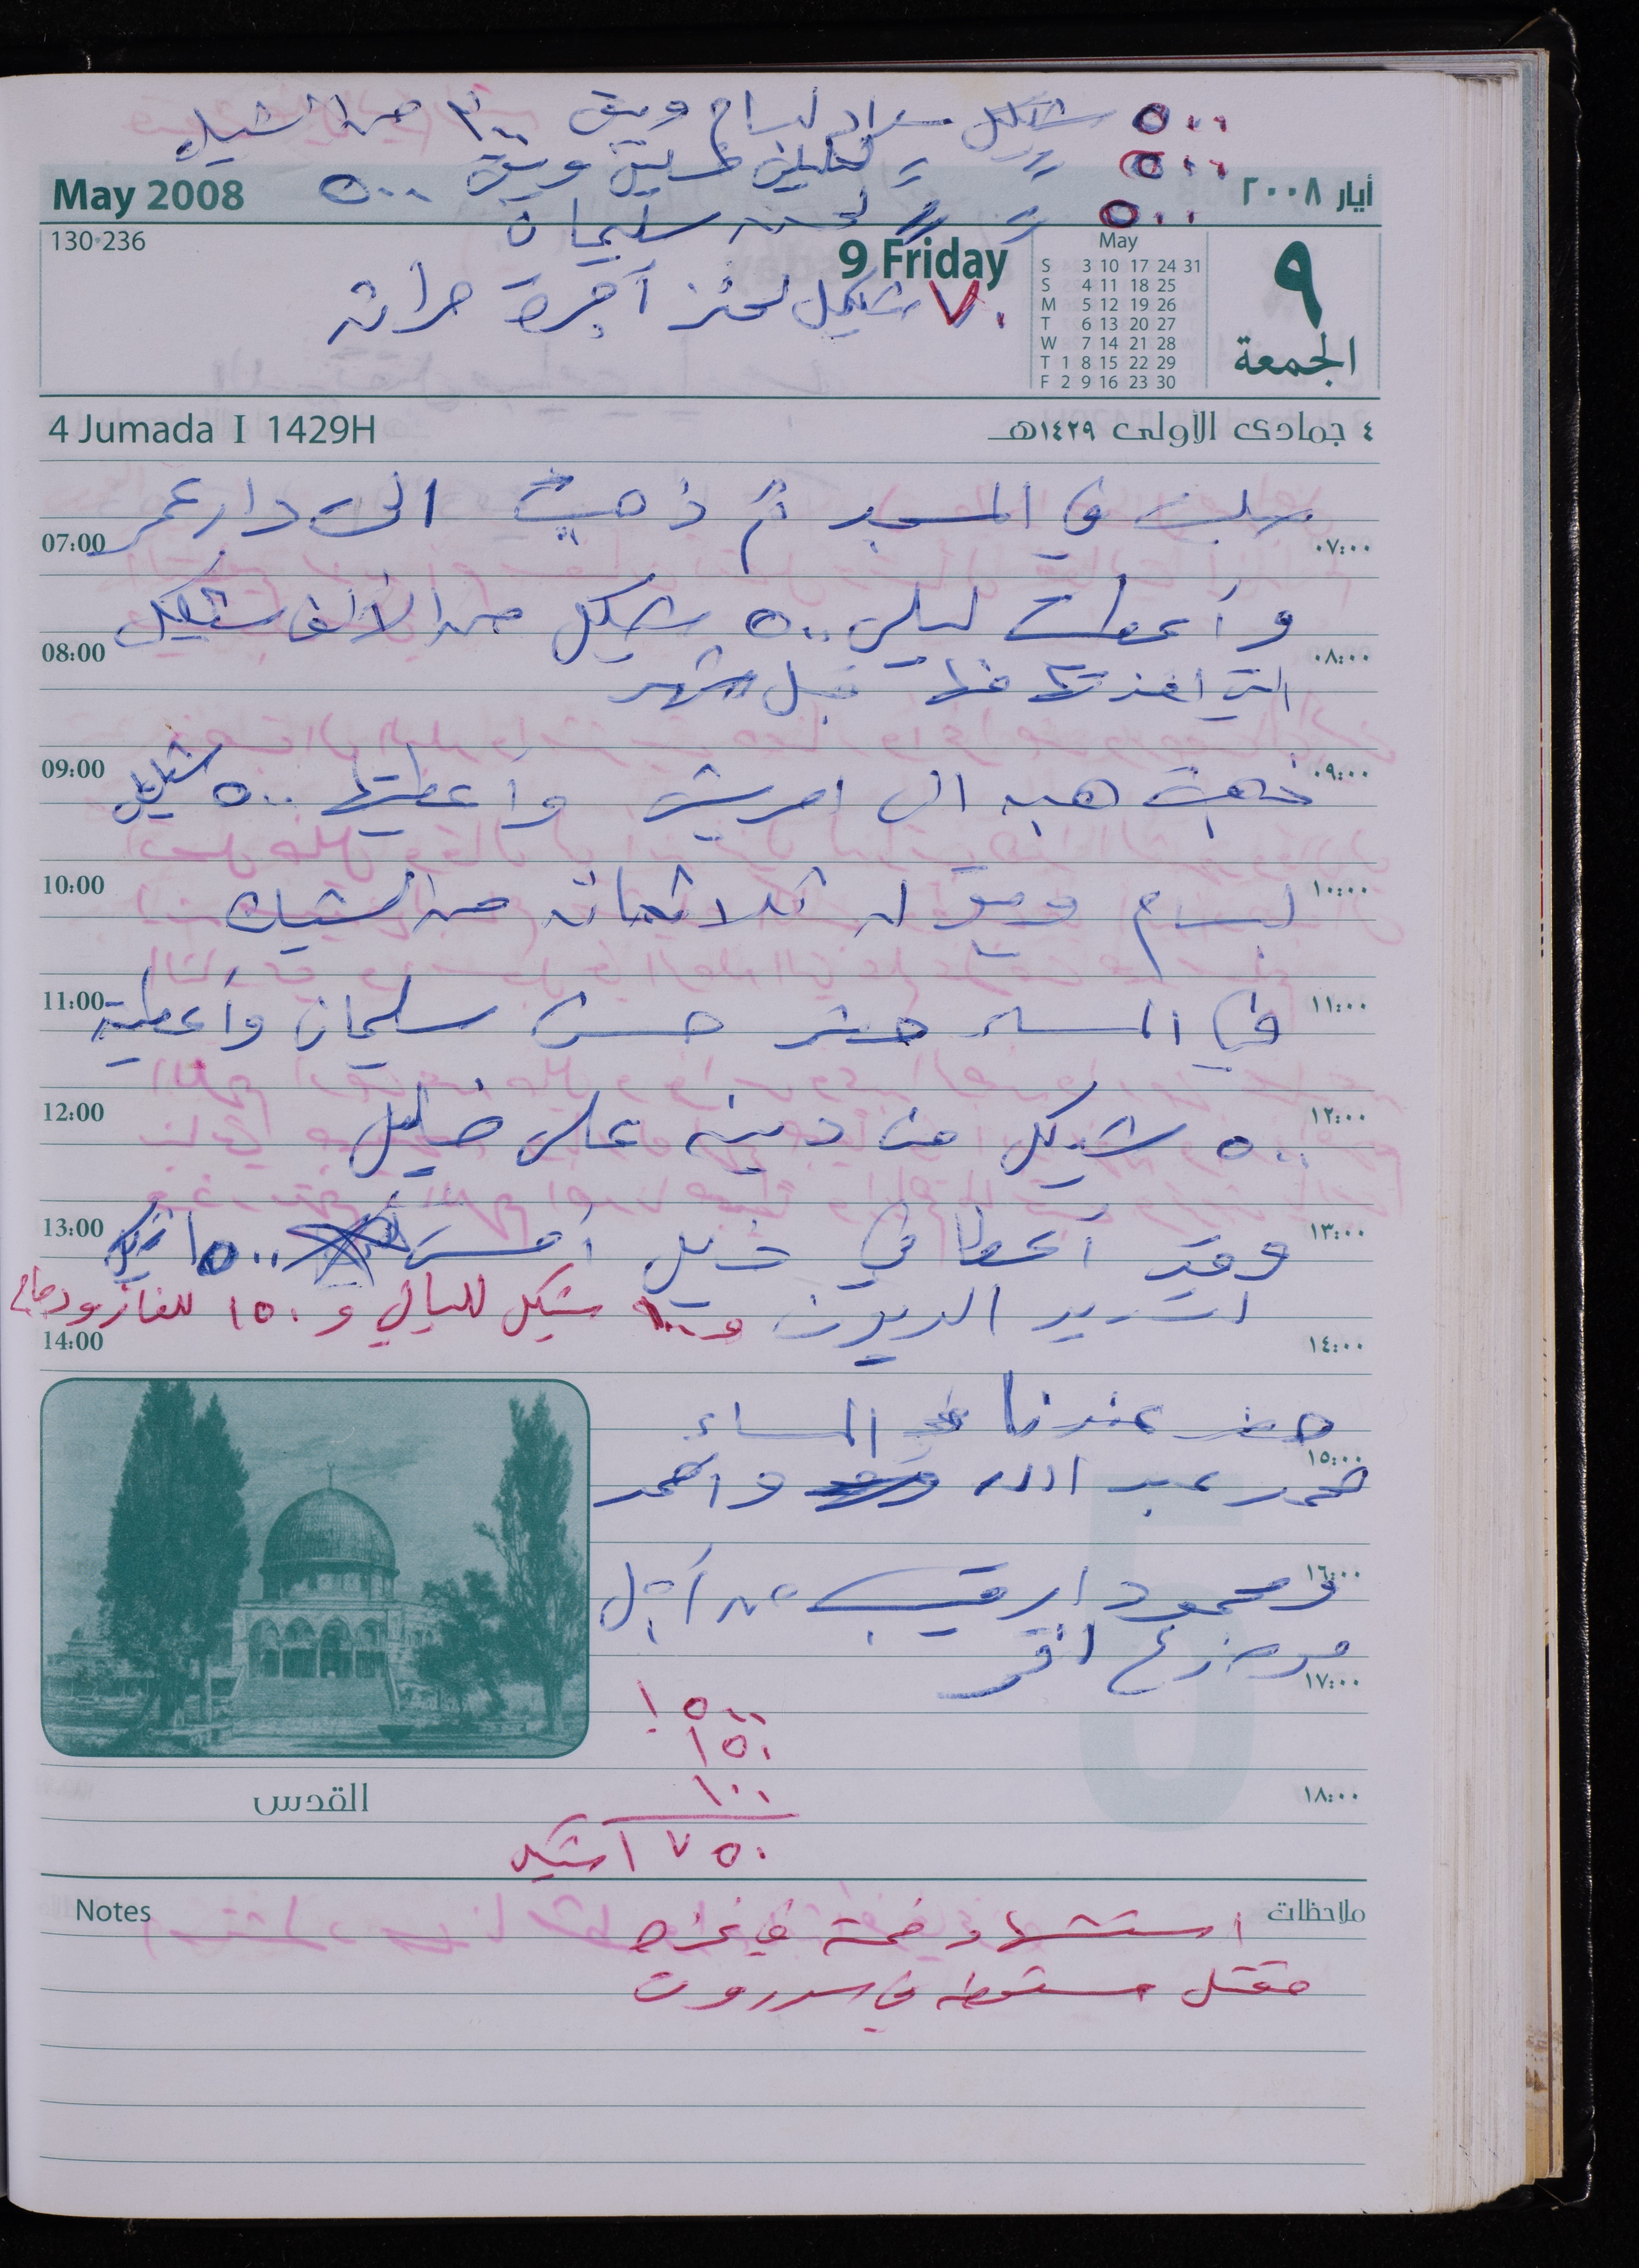 ٥٠٠ شيكل سداد لبسام وبقي ٣٠٠ من الشيك
٥٠٠ = = وبقي ٥٠٠
May 2008
أيار ٢٠٠٨
٥٠٠ = = لحسن سليمان
130-236
9 Friday
May
S 3 10 17 24 31
S 4 11 18 25
M 5 12 19 26
T 6 13 20 27
W 7 14 21 28
T 1 8 15 22 29
F 2 9 16 23 30
٩
الجمعة
٧٠ شيكل أجرة حراثه
4 Jumada I 1429H
٤ جمادى الأولى ١٤٢٩هـ
صليت في المسجد ثم ذهبت الى دار عمر
07:00 ٠٧:٠٠
وأعطيت ليلى ٥٠٠ شيكل من الألف شيكل
08:00 ٠٨:٠٠
التي اخذتها منها قبل شهر
09:00 ٠٩:٠٠
ذهبت هبه الى امريش وأعطيتها ٥٠٠ شيكل
10:00 ١٠:٠٠
لبسام وبقي له ثلاثمائه من الشيك
11:00 ١١:٠٠
في المساء حضر حسن سليمان وأعطيته
12:00 ١٢:٠٠
٥٠٠ شيكل من دينه على خليل
13:00 ١٣:٠٠
وقد أعطاني خليل أمس ١٥٠٠ شيكل
لتسديد الديون و ١٠٠ شيكل لليالي و ١٥٠ للغاز ودجاج
14:00 ١٤:٠٠
حضر عندنا في المساء
١٥:٠٠
محمد عبد الله واحمد
١٦:٠٠
ومحمود ارقيب من أجل
موضوع اقر
١٧:٠٠
١٥٠٠
١٥٠
١٠٠
١٧٥٠ شيكل
القدس
١٨:٠٠
Notes
ملاحظات
استشهاد خمسة في غزه
مقتل مستوطنه في سدروت